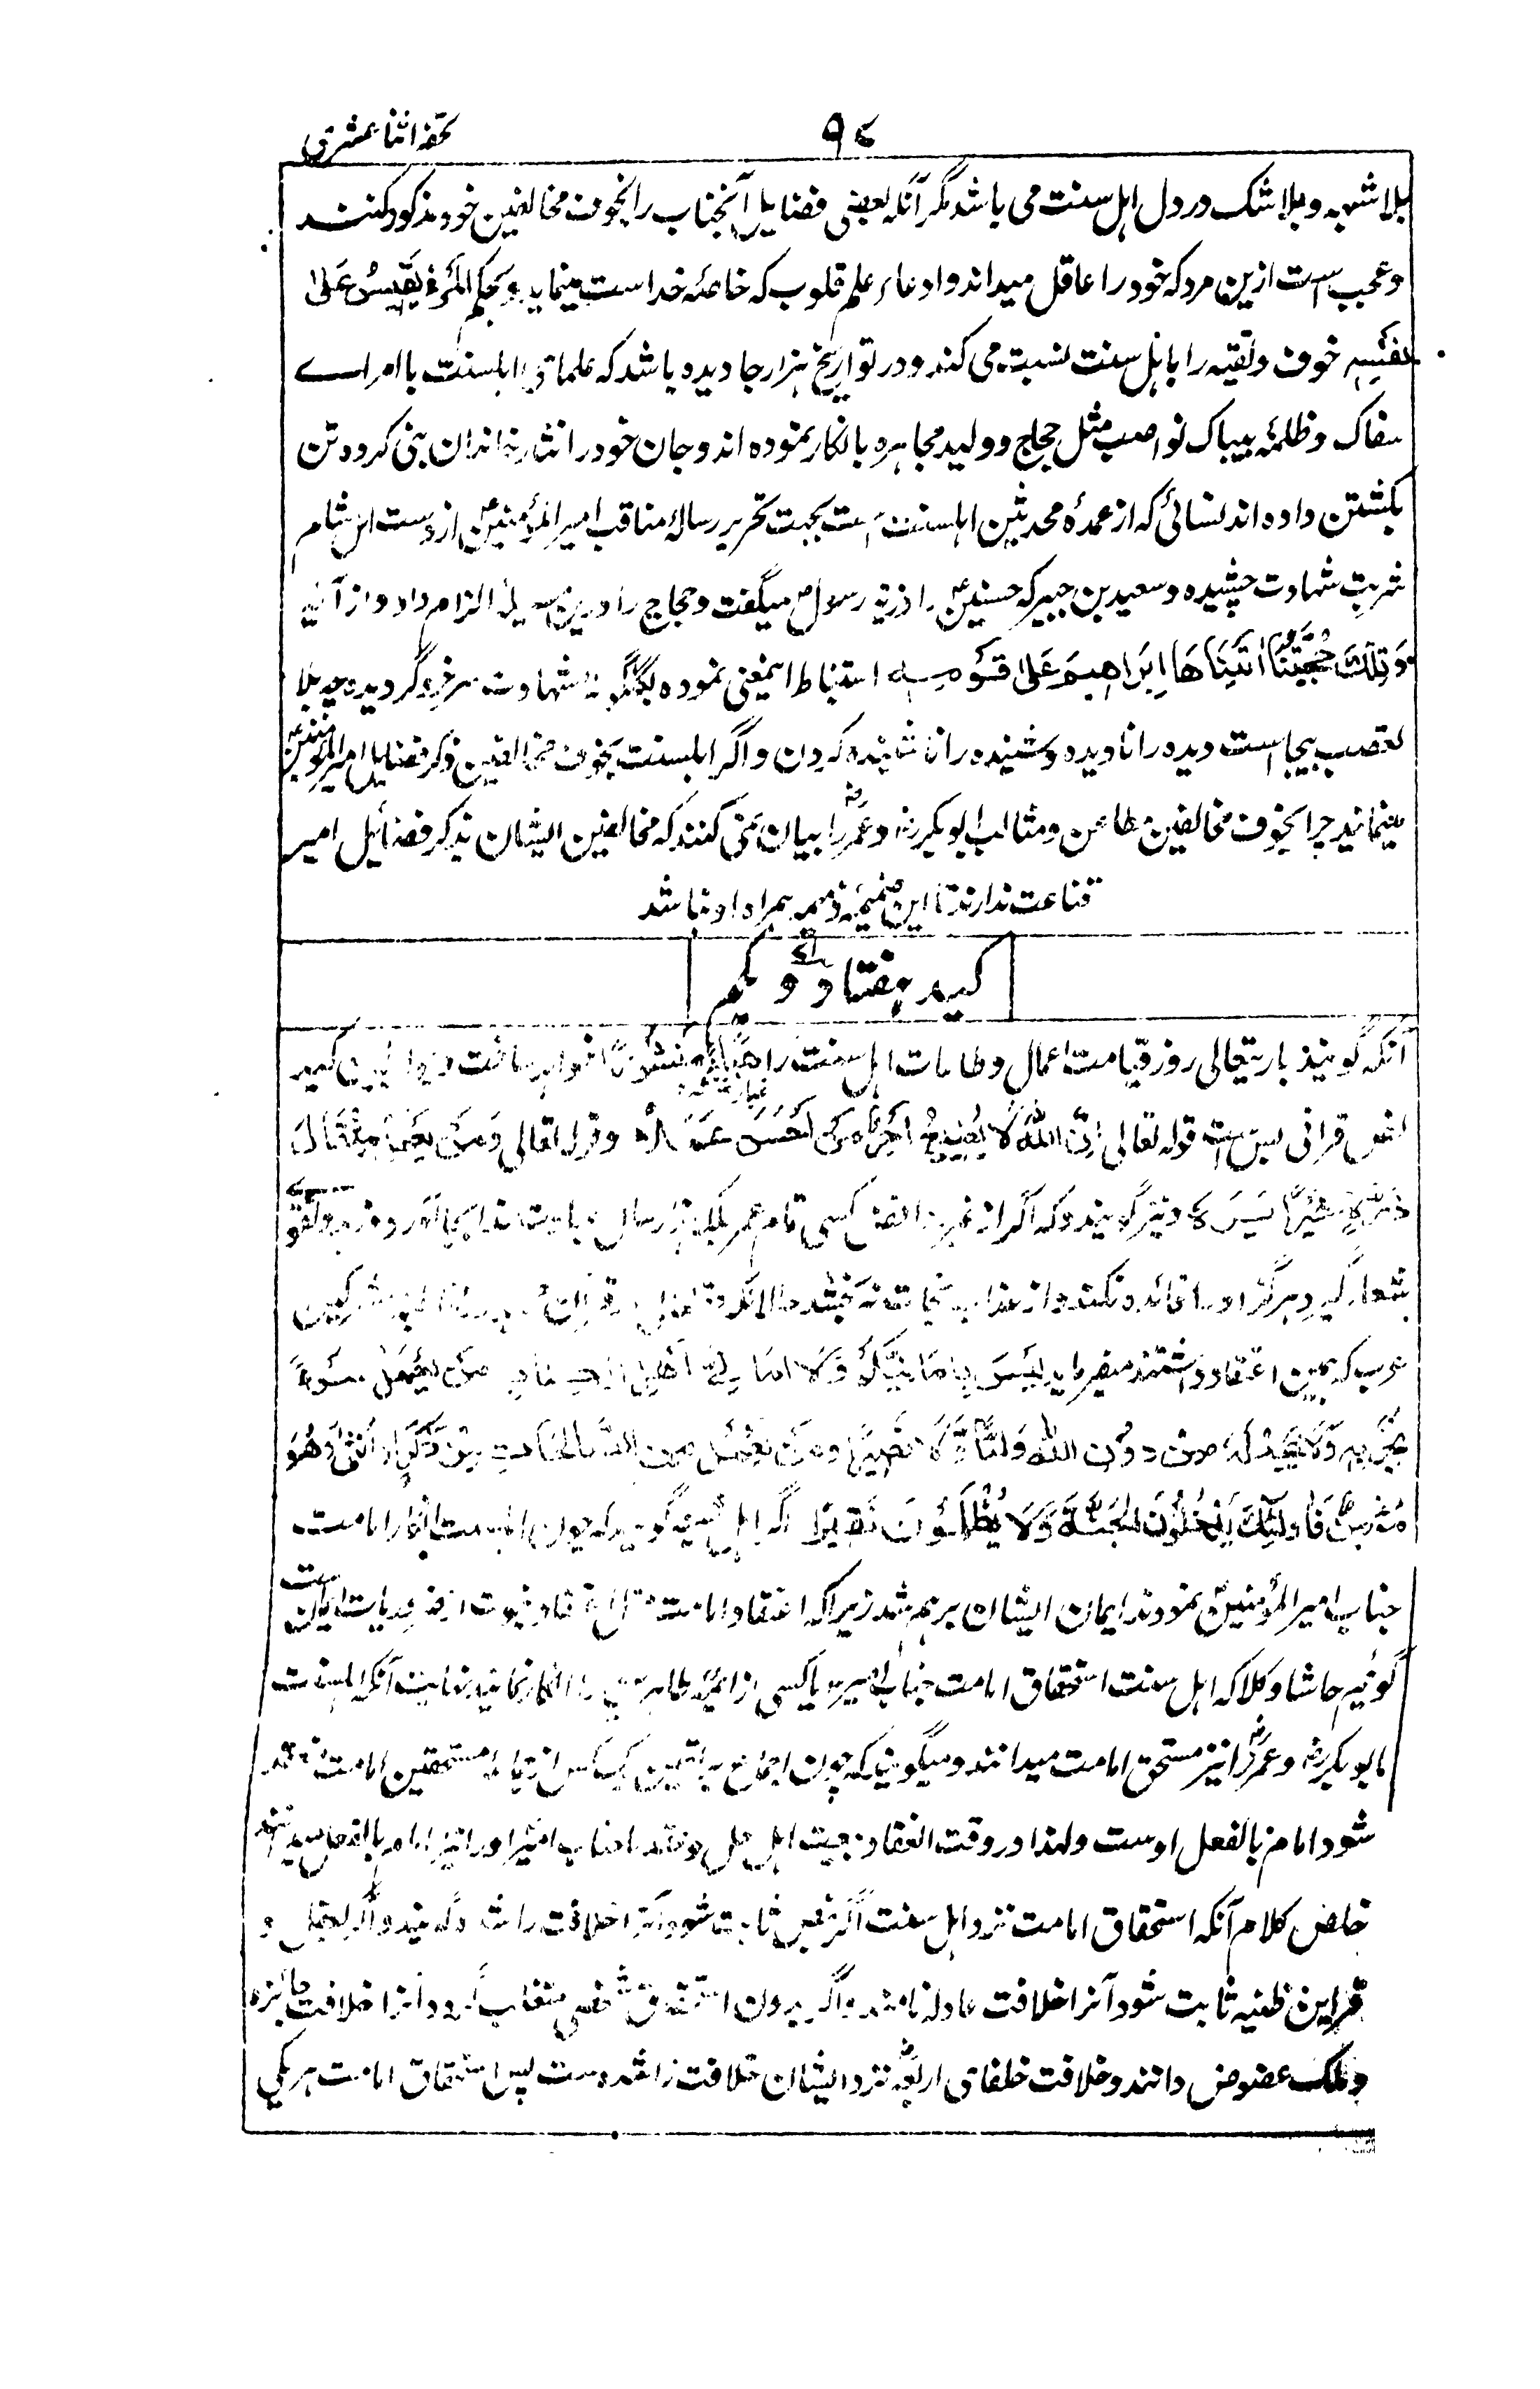 تحفه اثنا عشری
۹۷
بلا شبهه و بلا شک در دل اہل سنت می باشد مگر آنکه بعضی فضایل آنجناب را بخوف مخالفین خود مذکور کنند
و عجب است ازین مرد که خود را عاقل میداند و ادعاء علم قلوب که خاصه خداست مینماید و بحکم المَرْءُ یَقِیسُ عَلیٰ
نَفْسِهِ خوف و تقیه را باہل سنت نسبت می کند و در تواریخ ہزار جا دیده باشد که علمای اہلسنت با امراے
سفاک و ظلمهٔ بیباک نواصب مثل حجاج و ولید مجاہره بانکار نموده اند و جان خود را نثار خاندان نبی کرده و تن
بکشتن داده اند نسائی که از عمدهٔ محدثین اہلسنت است بجهت تحریر رسالهٔ مناقب امیر المؤمنینؑ از دست اہل شام
شربت شهادت چشیده و سعید بن جبیر که حسنینؑ را ذریه رسولؐ میگفت و حجاج را درین مسئله الزام داد و از آیه
وَتِلْكَ حُجَّتُنَا اٰتَیْنَاهَا اِبْرَاهِیمَ عَلیٰ قَوْمِهِ استنباط اینمعنی نموده بگلگونهٔ شهادت سرخرو گردیده چه بلا
تعصب بیجاست دیده را نادیده و شنیده را ناشنیده کردن و اگر اہلسنت بخوف مخالفین ذکر فضایل امیر المؤمنینؑ
مینمایند چرا بخوف مخالفین مطاعن و مثالب ابوبکرؓ و عمرؓ را بیان نمی کنند که مخالفین ایشان بذکر فضائل امیر
قناعت ندارند تا این ضمیمهٔ ذمیمه ہمراه او نباشد
کید ہفتاد و یکم
آنکه گویند باریتعالی روز قیامت اعمال و طاعات اہل سنت را هَبَاءً مَنْثُورًا خواہد ساخت و جواب این کید
از نص قرآنی مبین است قوله تعالی اِنَّ اللهَ لَا یُضِیعُ اَجْرَ مَنْ اَحْسَنَ عَمَلًا و قوله تعالی وَمَنْ یَعْمَلْ مِثْقَالَ
ذَرَّةٍ خَیْرًا یَرَهُ و نیز گویند که اگر از غیر رافضی کسی تمام عمر بلکه ہزار سال عبادت خدا بجا آورد و زہد و تقوے
شعار گیرد ہرگز او را فائده نکند و از عذاب نجات نبخشد حالانکه حق تعالی در قرآن
عرب که ہمین اعتقاد داشتند میفرماید لَیْسَ بِاَمَانِیِّکُمْ وَلَا اَمَانِیِّ اَهْلِ الْکِتَابِ مَنْ یَعْمَلْ سُوءًا
یُجْزَ بِهِ وَلَا یَجِدْ لَهُ مِنْ دُوْنِ اللهِ وَلِیًّا وَّلَا نَصِیرًا وَمَنْ یَعْمَلْ مِنَ الصَّالِحَاتِ مِنْ ذَکَرٍ اَوْ اُنْثٰی وَهُوَ
مُؤْمِنٌ فَاُولٰئِکَ یَدْخُلُوْنَ الْجَنَّةَ وَلَا یُظْلَمُوْنَ نَقِیرًا اگر اہل تشیع گویند که چون اہلسنت انکار امامت
جناب امیر المؤمنینؑ نمودند ایمان ایشان برہم شد زیرا که اعتقاد امامت مثل اعتقاد نبوت از ضروریات ایمان است
گوئیم حاشا و کلا که اہل سنت استحقاق امامت جناب امیر یا کسی از ائمهٔ طاہرین را انکار نمایند نہایت آنکه اہلسنت
ابوبکرؓ و عمرؓ را نیز مستحق امامت میدانند و میگویند که چون اجماع بر تعیین یک کس از جماعهٔ مستحقین امامت منعقد
شود امام بالفعل اوست و لہذا در وقت انعقاد بیعت اہل حل و عقد با جناب امیر او را نیز امام بالفعل میدانند
خلص کلام آنکه استحقاق امامت نزد اہل سنت اگر بنص ثابت شود آنرا خلافت راشده گویند و اگر بعقل و
قراین ظنیه ثابت شود آنرا خلافت عادله نامند و اگر بدون استحقاق شخصی متغلب شود آنرا خلافت جائزه
و ملک عضوض دانند و خلافت خلفای اربعهؓ نزد ایشان خلافت راشده ست پس استحقاق امامت ہر یکی